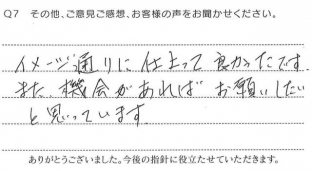 Q7 その他、ご意見ご感想、お客様の声をお聞かせください。
イメージ通りに仕上って良かったです。
また、機会があれば お願いしたい
と思っています
ありがとうございました。今後の指針に役立たせていただきます。